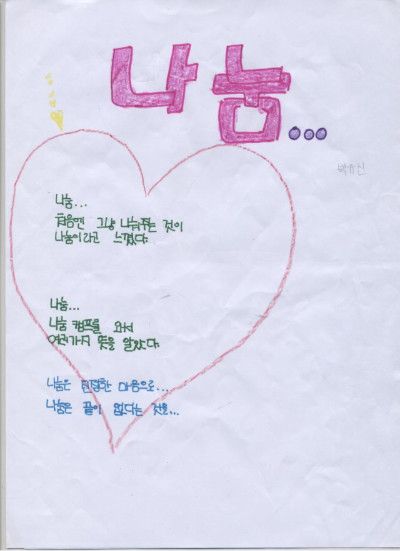 나눔...
나눔...
처음엔 그냥 나눠주는 것이
나눔이라고 느꼈다.
나눔...
나눔 캠프를 와서
여러가지 뜻을 알았다
나눔은 친절한 마음으로...
나눔은 끝이 없다는 것을...